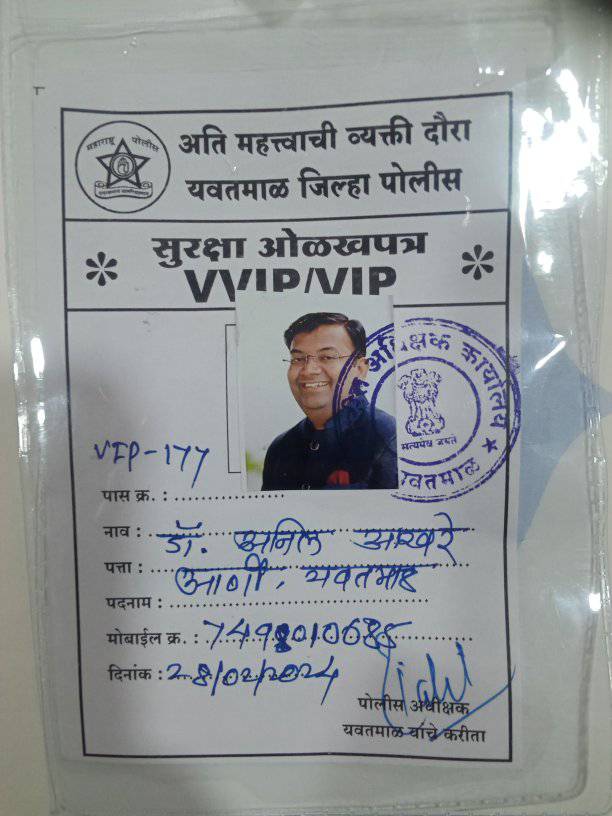 महाराष्ट्र पोलीस
अति महत्त्वाची व्यक्ती दौरा
यवतमाळ जिल्हा पोलीस
सुरक्षा ओळखपत्र
VVIP/VIP
अधिक्षक कार्यालय
सत्यमेव जयते
यवतमाळ
VIP-177
पास क्र. :
नाव : डॉ. अनिल आखरे
पत्ता : आर्णी, यवतमाळ
पदनाम :
मोबाईल क्र. :
दिनांक : 28/02/2024
पोलीस अधीक्षक
यवतमाळ यांचे करीता